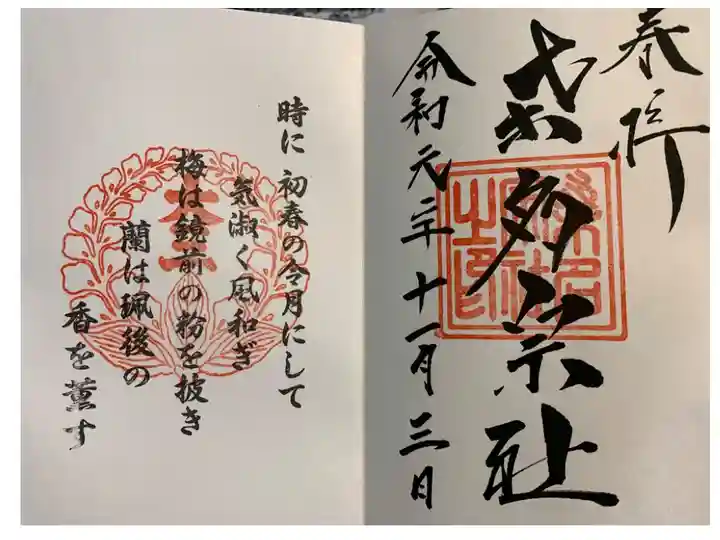 奉拝
桑名宗社
桑名宗社之印
令和元年十一月三日
時に 初春の令月にして
気淑く風和ぎ
梅は鏡前の粉を披き
蘭は珮後の
香を薫す